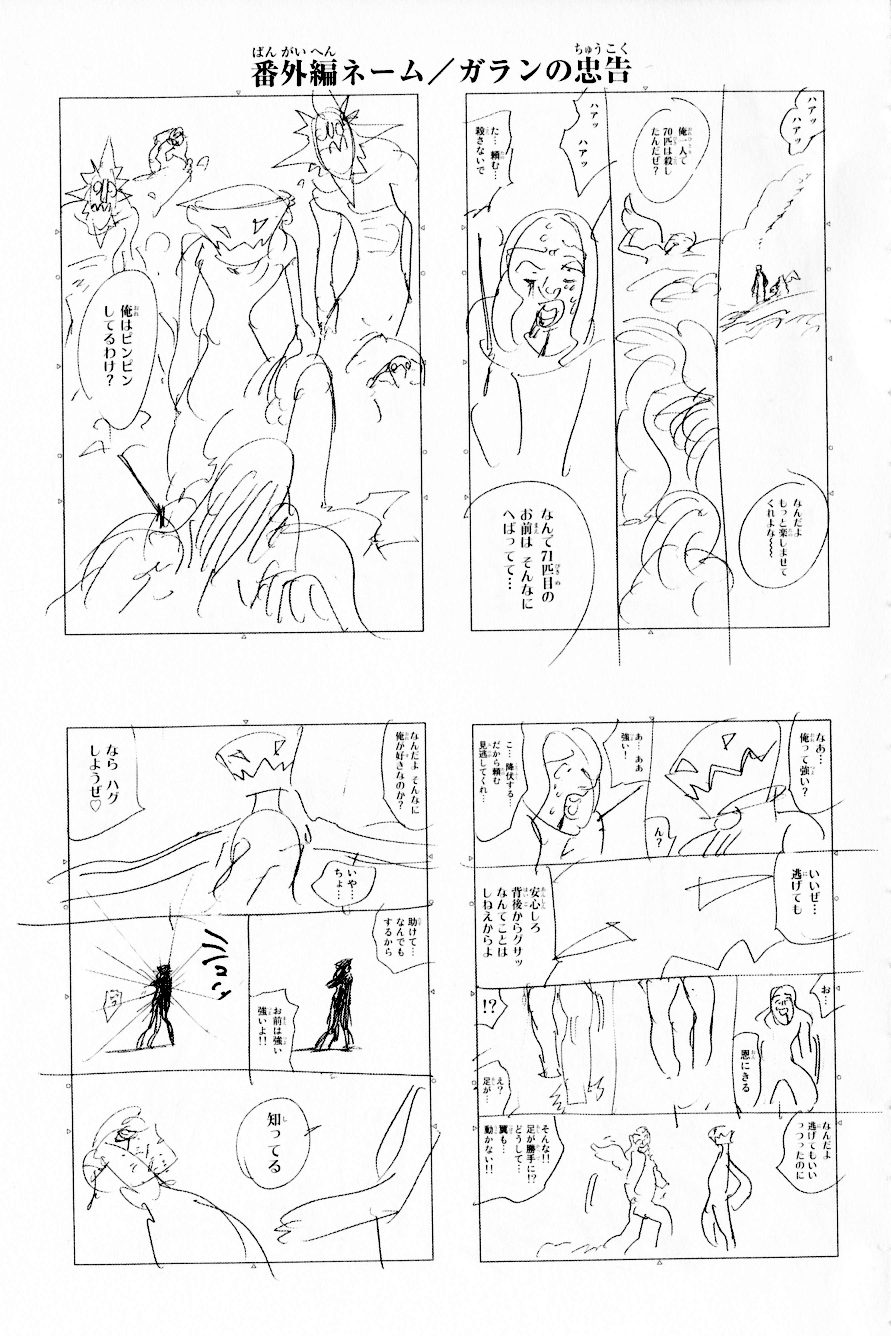 番外編ネーム／ガランの忠告
ハアッ
ハアッ
なんだよ
もっと楽しませて
くれよな〜〜〜
俺一人で
70匹は殺し
たんだぜ？
ハアッ
ハアッ
た…頼む…
殺さないで
なんで71匹目の
お前は そんなに
へばってて…
俺はピンピン
してるわけ？
なあ…
俺って強い？
ん？
あ…ああ
強い！
こ…降伏する…
だから頼む
見逃してくれ…
いいぜ…
逃げても
安心しろ
背後からグサッ
なんてことは
しねえからよ
お…
恩にきる
!?
え？
足が…
なんだよ
逃げてもいい
っつったのに
そんな!!
足が勝手に!?
どうして…
翼も…
動かない!!
なんだよ そんなに
俺が好きなのか？
なら ハグ
しようぜ♡
いや…
ちょ…
助けて…
なんでも
するから
お前は強い
強いよ!!
知ってる